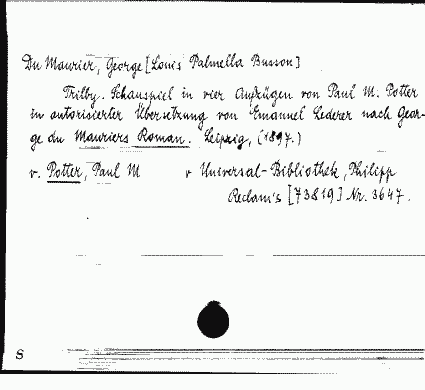 Du Maurier, George [Louis Palmella Busson]
Trilby. Schauspiel in vier Aufzügen von Paul M. Potter
in autorisierter Übersetzung von Emanuel Lederer nach Geor-
ge du Mauriers Roman. Leipzig, (1897.)
v. Potter, Paul M v Universal-Bibliothek, Philipp
Reclam's [73819] Nr. 3647.
S